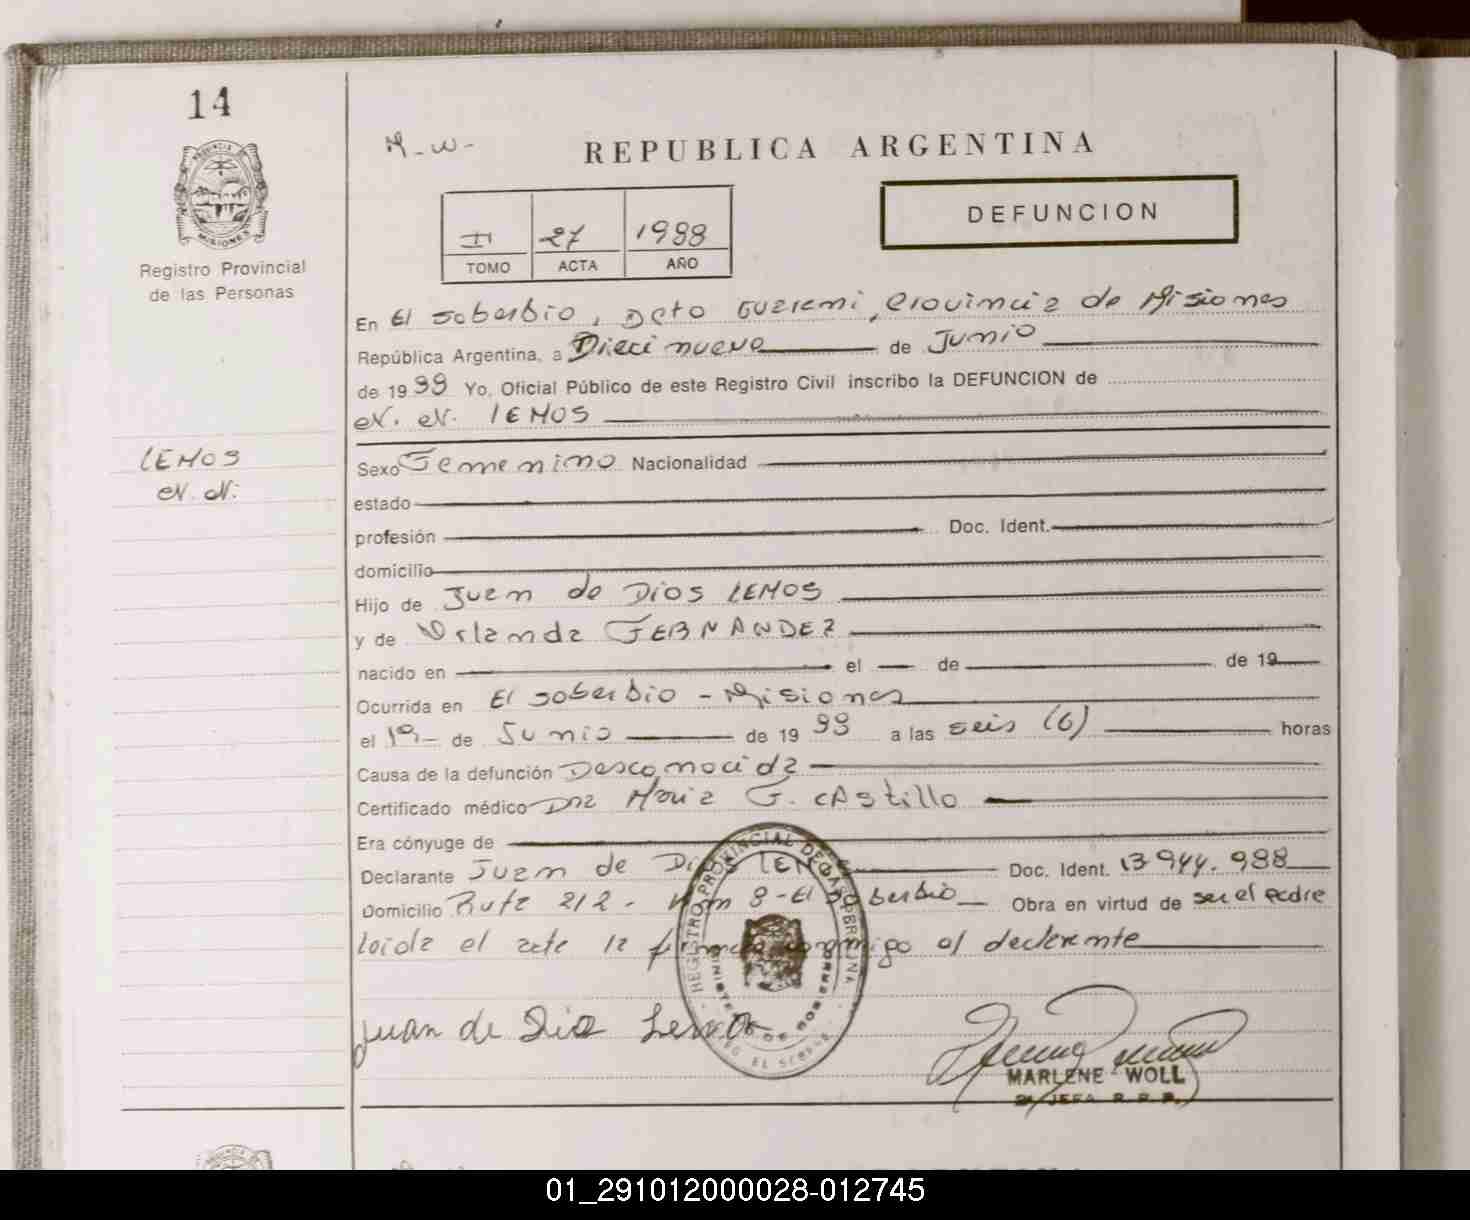 14
M-W-
REPUBLICA ARGENTINA
PROVINCIA DE
MISIONES
Registro Provincial
de las Personas
II 27 1988
TOMO ACTA AÑO
DEFUNCION
En El Soberbio, Dpto Guarani, Provincia de Misiones
República Argentina, a Dieci nueve de Junio
de 1988 Yo, Oficial Público de este Registro Civil inscribo la DEFUNCION de
N. N. LEMOS
LEMOS
N. N.
Sexo Femenino Nacionalidad
estado
profesión Doc. Ident.
domicilio
Hijo de Juan de Dios LEMOS
y de Orlanda FERNANDEZ
nacido en el de de 19
Ocurrida en El Soberbio - Misiones
el de Junio de 1988 a las seis (6) horas
Causa de la defunción Desconocida
Certificado médico Dra Maria G. CAStillo
Era cónyuge de
Declarante Juan de Dios LEMOS Doc. Ident. 13 944.988
Domicilio Ruta 212 - Km 8 - El Soberbio Obra en virtud de ser el padre
Loida el acta la firma conmigo el declarante
REGISTRO PROVINCIAL DE LAS PERSONAS
MINISTERIO DE GOBIERNO
Juan de Dio Lemos
MARLENE WOLL
2ª JEFA R. P. P.
01_291012000028-012745